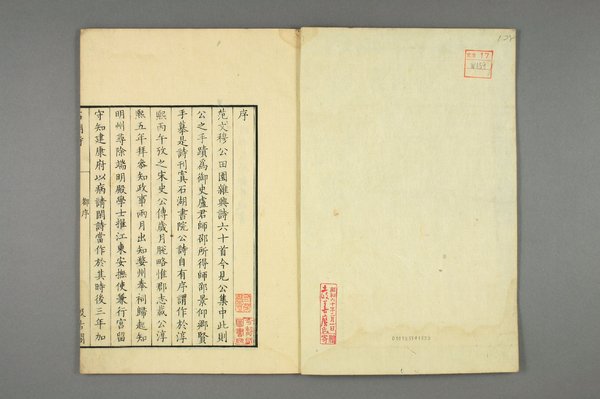 序
范文穆公田園雜興詩六十首今見公集中此則
公之手蹟為御史盧君師邵所得師邵景仰鄉賢
手摹是詩刊寘石湖書院公詩自有序謂作於淳
熙丙午攷之宋史公傳歲月脫略惟郡志載公淳
熙五年拜參知政事兩月出知婺州奉祠歸起知
明州尋除端明殿學士推江東安撫使兼行宮留
守知建康府以病請閒詩當作於其時後三年加
鄉序